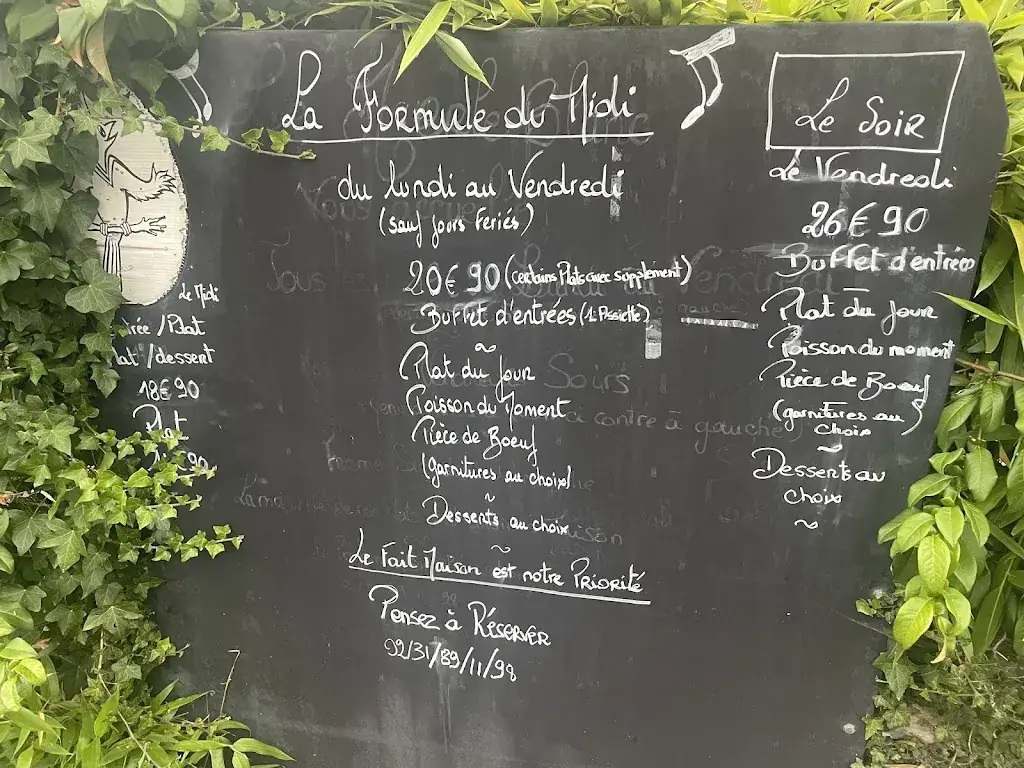 La Formule du Midi
du lundi au Vendredi
(sauf jours feriés)
20€90 (certains Plats avec supplément)
Buffet d'entrées (1 Assiette)
~
Plat du jour
Poisson du Moment
Pièce de Boeuf
(garnitures au choix)
~
Desserts au choix
~
Le Fait Maison est notre Priorité
Pensez à Réserver
02/31/89/11/98
Le Soir
Le Vendredi
26€90
Buffet d'entrée
Plat du jour
Poisson du moment
Pièce de Boeuf
(garnitures au
choix)
~
Desserts au
choix
~
de Midi
/Plat
/dessert
18€90
Plat